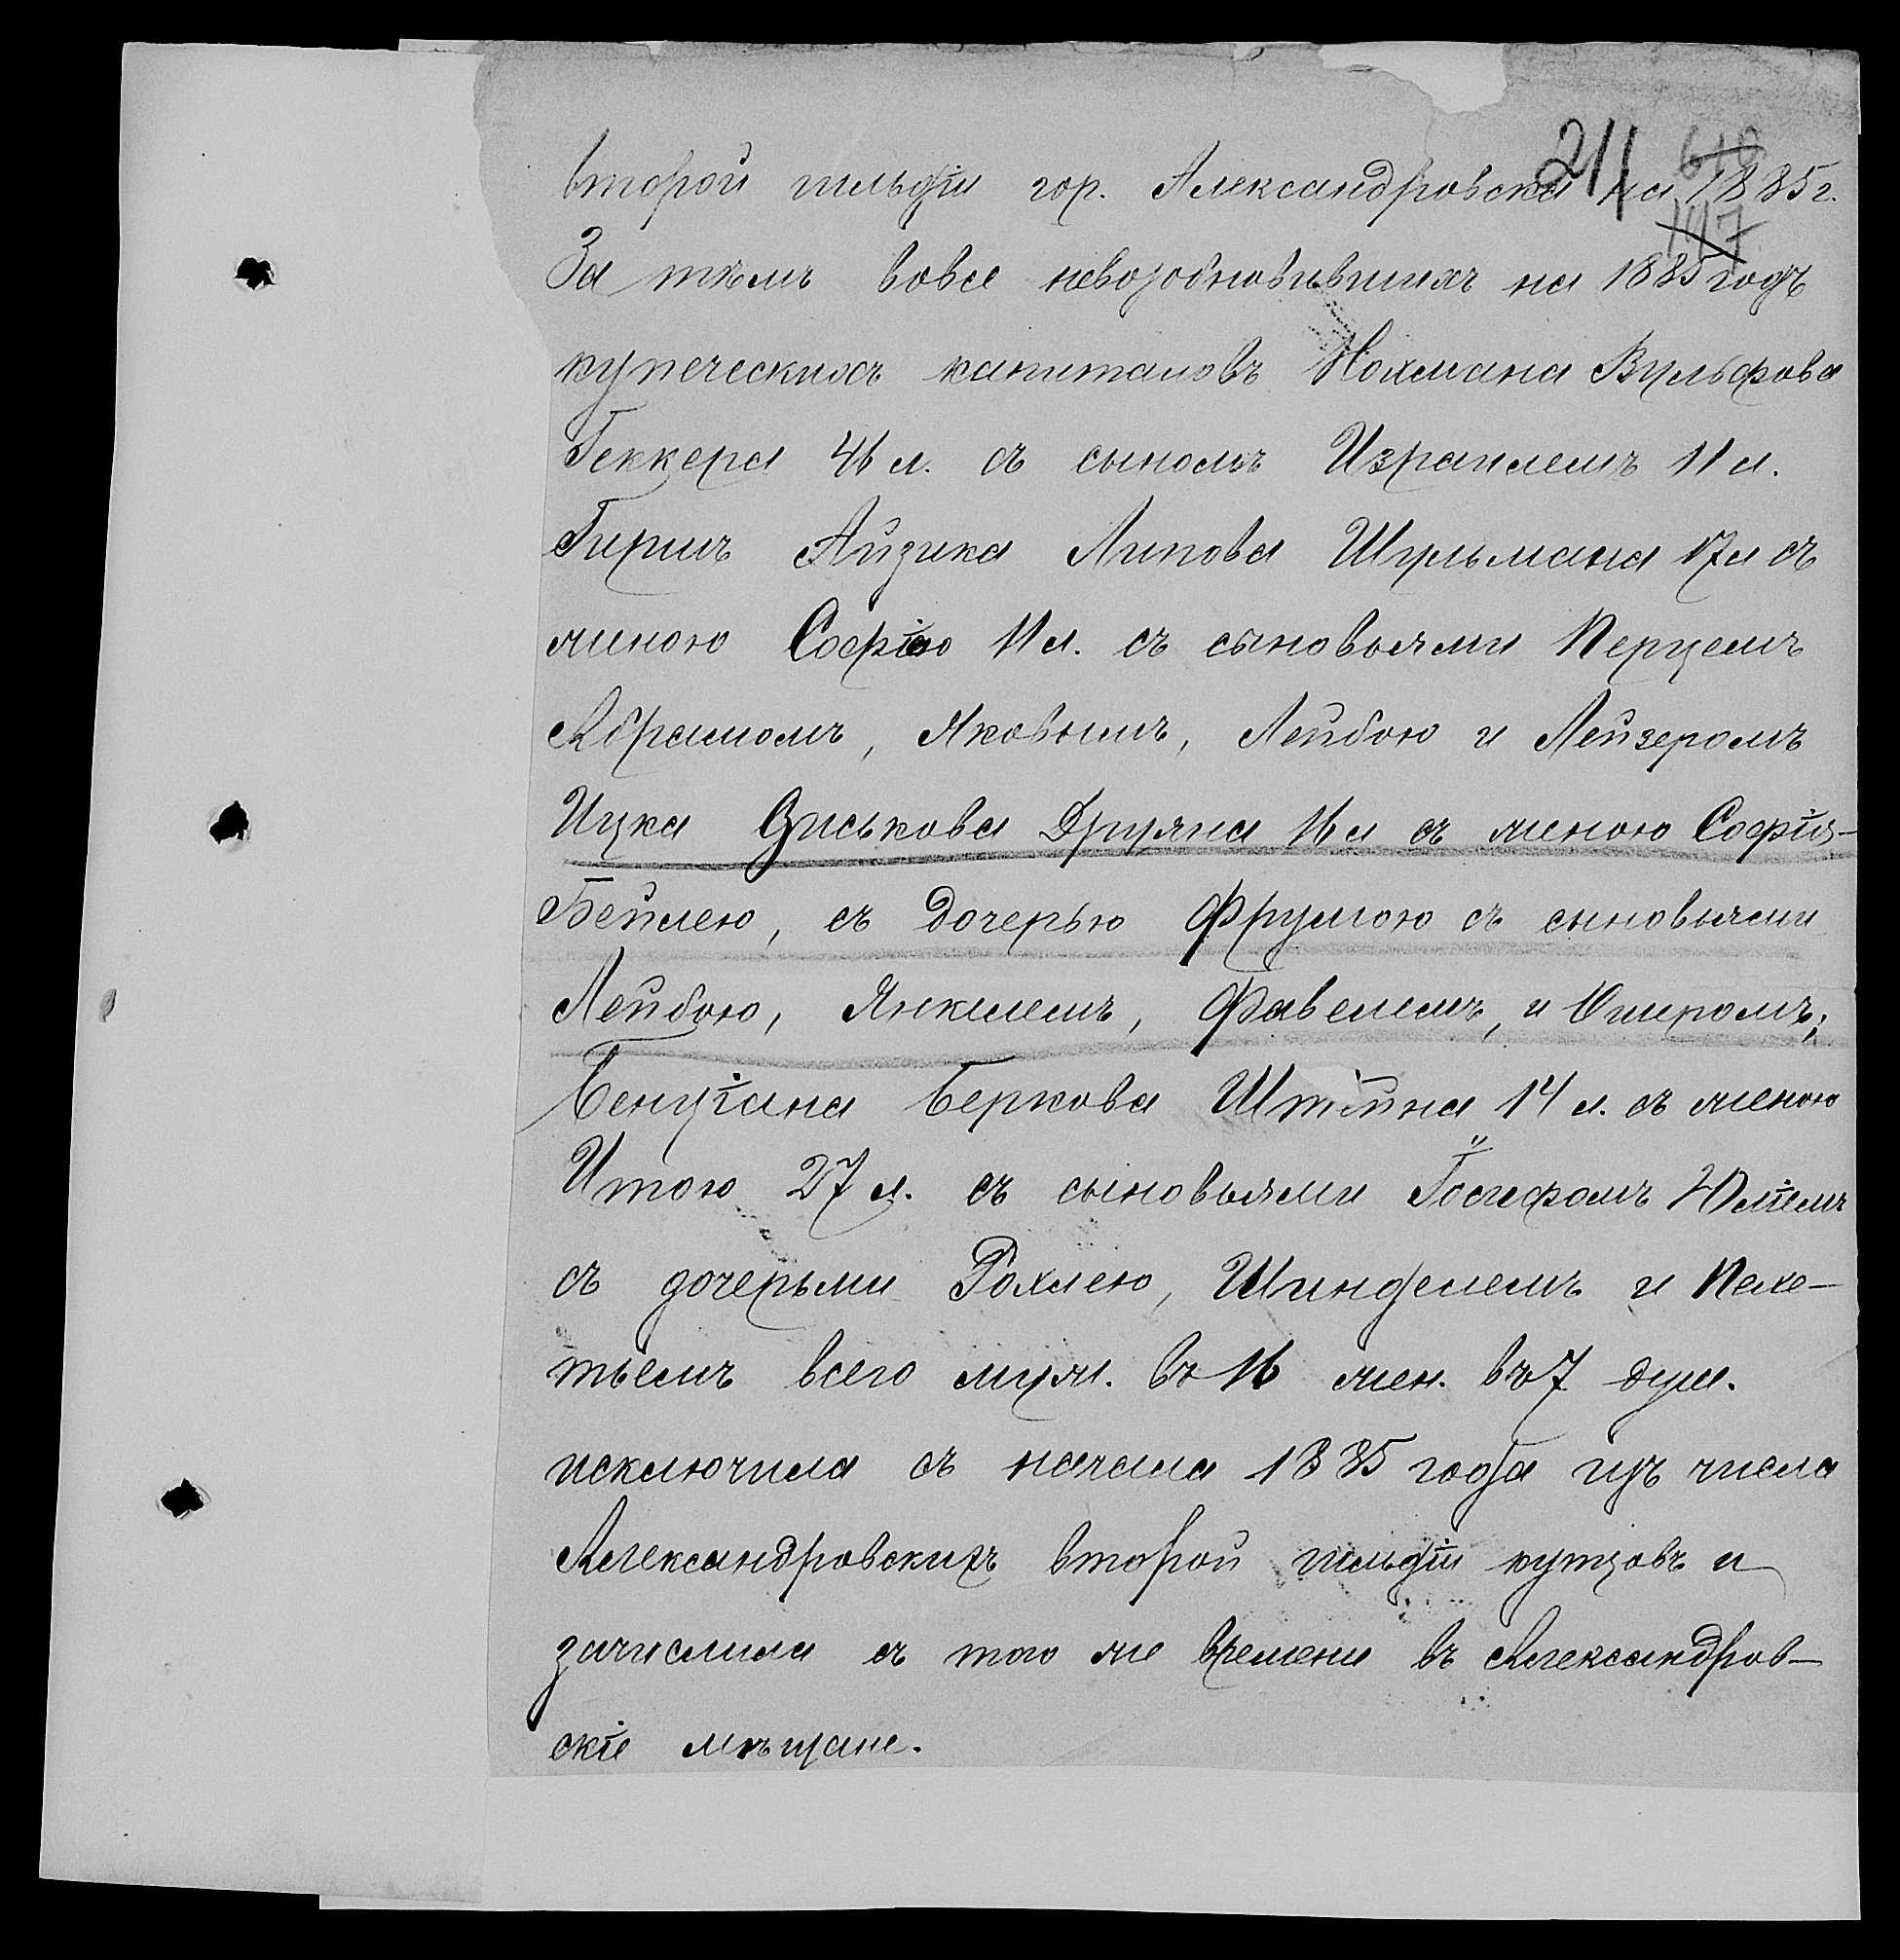 211 618
второй гильдіи гор. Александровска на 1885 г.
197
За тѣмъ вовсе невозобновившихъ на 1885 годъ
купеческихъ капиталовъ Нохмана Вульфова
Геккера 46 л. съ сыномъ Израилемъ 11 л.
Гирша Айзика Липова Шульмана 17 л съ
женою Софіею 11 л. съ сыновьями Перцемъ
Абрамомъ, Яковымъ, Лейбою и Лейзеромъ
Ицка Зиськова Друяна 16 л съ женою Софія-
Бейлею, съ дочерью Фрумою съ сыновьями
Лейбою, Янкелемъ, Фавелемъ, и Ошеромъ;
Бенціана Беркова Штейна 14 л. съ женою
Итою 27 л. съ сыновьями Іосифомъ Юліемъ
съ дочерьми Рохлею, Шинделемъ и Пехе-
тьемъ всего муж. въ 16 жен. въ 7 душ.
исключила съ начала 1885 года изъ числа
Александровскихъ второй гильдіи купцовъ и
зачислила съ того же времени въ Александров-
скіе мѣщане.